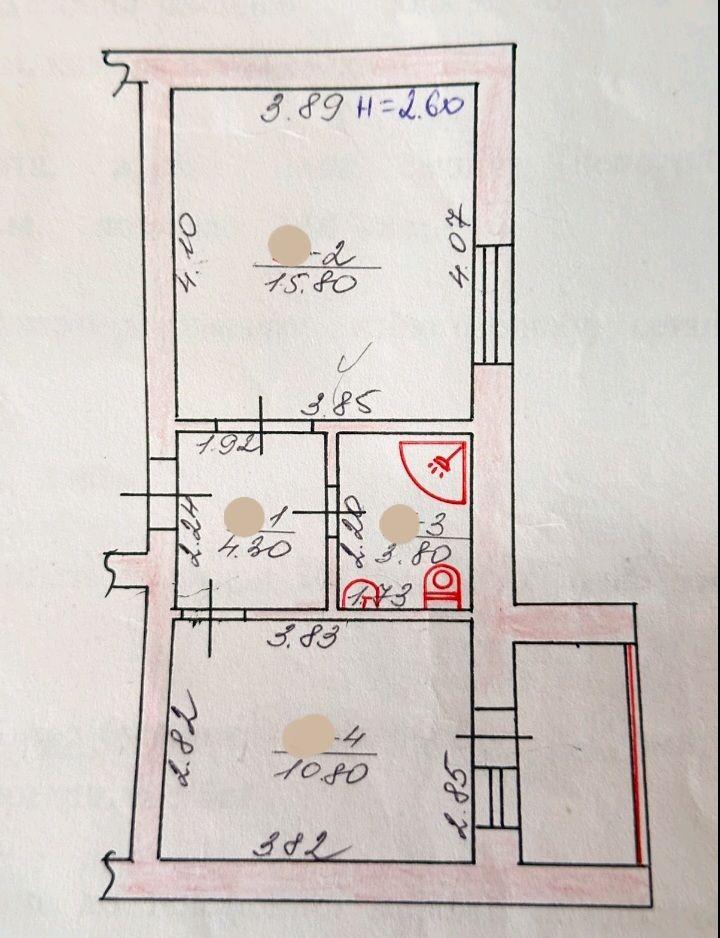 3.89 H=2.60
4.10
4.07
-2
15.80
3.85
1.92
2.24
1
4.30
2.20
-3
3.80
1.73
3.83
2.82
-4
10.80
2.85
3.82